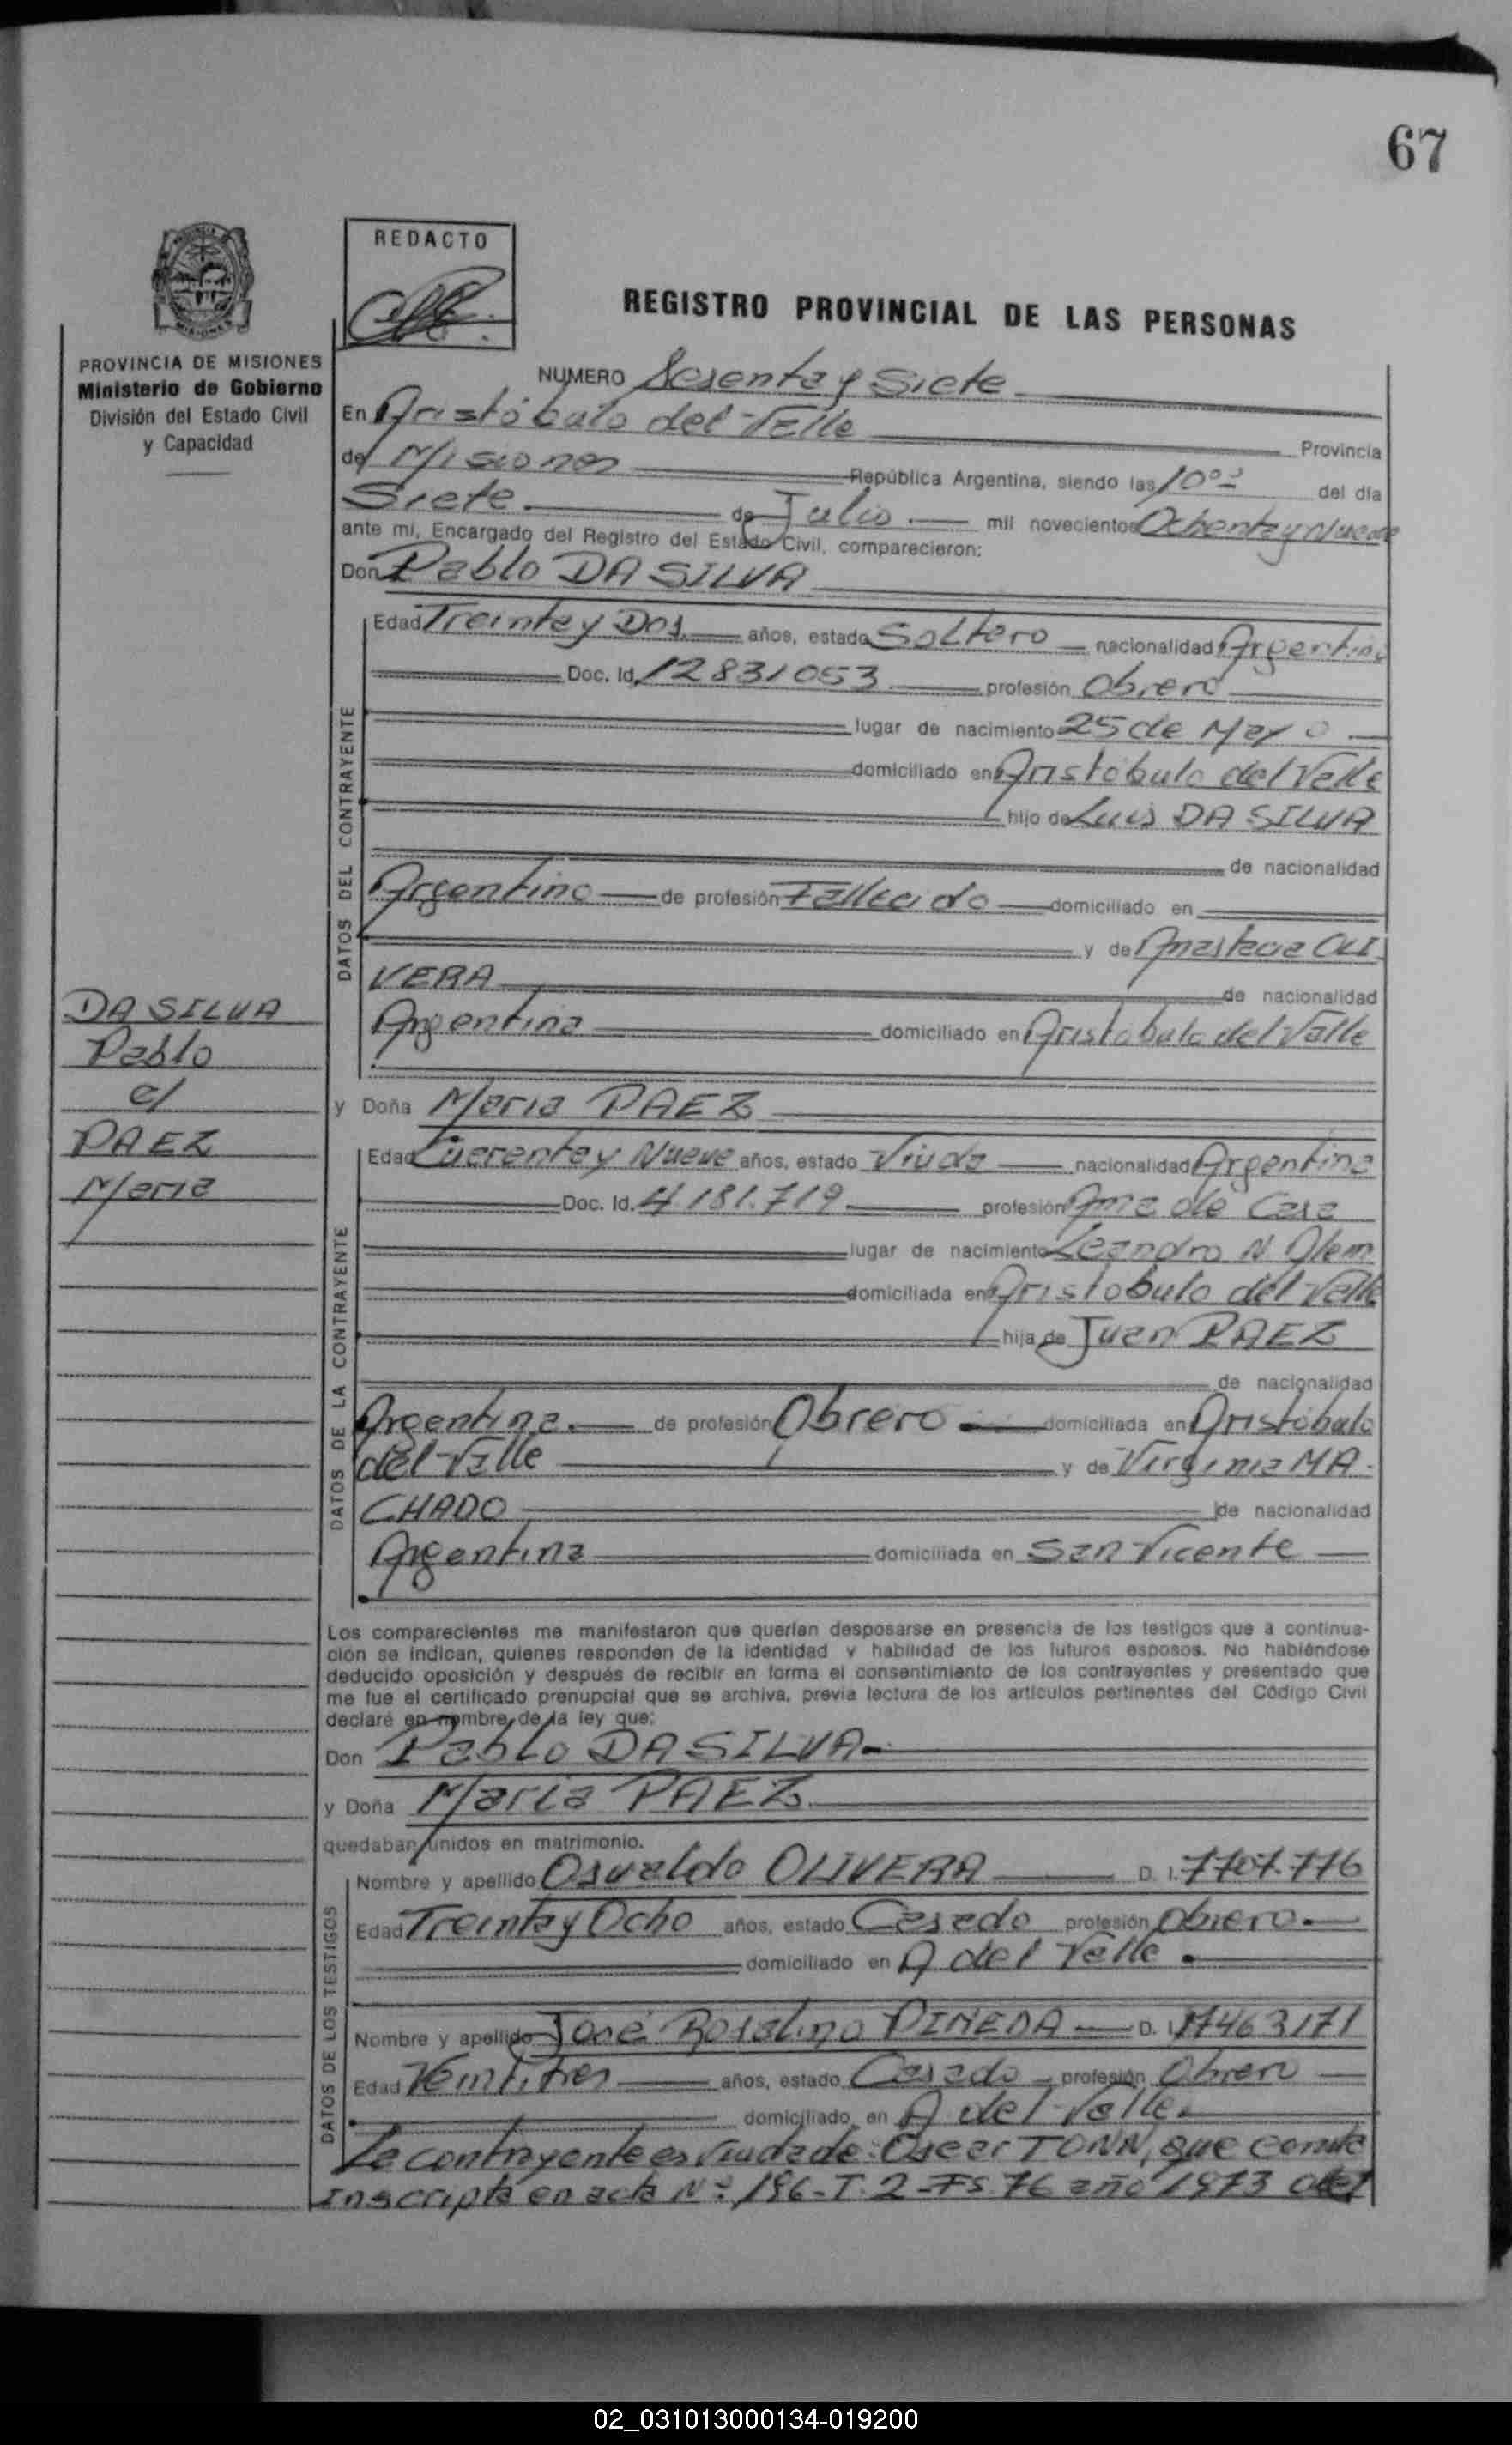 67
REDACTO
REGISTRO PROVINCIAL DE LAS PERSONAS
PROVINCIA DE MISIONES
Ministerio de Gobierno
División del Estado Civil
y Capacidad
NUMERO Sesenta y Siete
En Aristóbulo del Valle Provincia
de Misiones República Argentina, siendo las 10 00 del día
Siete de Julio mil novecientos Ochenta y Nueve
ante mí, Encargado del Registro del Estado Civil, comparecieron:
Don Pablo DA SILVA
DATOS DEL CONTRAYENTE
Edad Treinta y Dos años, estado Soltero nacionalidad Argentino
Doc. Id. 12831053 profesión Obrero
lugar de nacimiento 25 de Mayo
domiciliado en Aristóbulo del Valle
hijo de Luis DA SILVA
de nacionalidad
Argentino de profesión Fallecido domiciliado en
y de OLI
VERA de nacionalidad
Argentina domiciliado en Aristobulo del Valle
DA SILVA
Pablo
c/
PAEZ
Maria
y Doña Maria PAEZ
DATOS DE LA CONTRAYENTE
Edad Cuarenta y Nueve años, estado Viuda nacionalidad Argentina
Doc. Id. 4.181.719 profesión Ama de Casa
lugar de nacimiento Leandro N. Alem
domiciliada en Aristobulo del Valle
hija de Juan PAEZ
de nacionalidad
Argentina de profesión Obrero domiciliada en Aristóbulo
del Valle y de Virginia MA-
CHADO de nacionalidad
Argentina domiciliada en San Vicente
Los comparecientes me manifestaron que querían desposarse en presencia de los testigos que a continua-
ción se indican, quienes responden de la identidad y habilidad de los futuros esposos. No habiéndose
deducido oposición y después de recibir en forma el consentimiento de los contrayentes y presentado que
me fue el certificado prenupcial que se archiva, previa lectura de los artículos pertinentes del Código Civil
declaré en nombre de la ley que:
Don Pablo DA SILVA
y Doña Maria PAEZ
quedaban unidos en matrimonio.
DATOS DE LOS TESTIGOS
Nombre y apellido Osvaldo OLIVERA D. I. 7707.776
Edad Treinta y Ocho años, estado Casado profesión Obrero
domiciliado en A del Valle
Nombre y apellido José Rosalino PINEDA D. I. 17463171
Edad Veintitres años, estado Casado profesión Obrero
domiciliado en A del Valle
La contrayente es Viuda de: Oscar TONN, que consta
Inscripta en acta Nº 196-T. 2-Fs. 76 año 1973 del
02_031013000134-019200